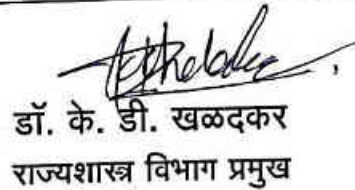 डॉ. के. डी. खळदकर
राज्यशास्त्र विभाग प्रमुख